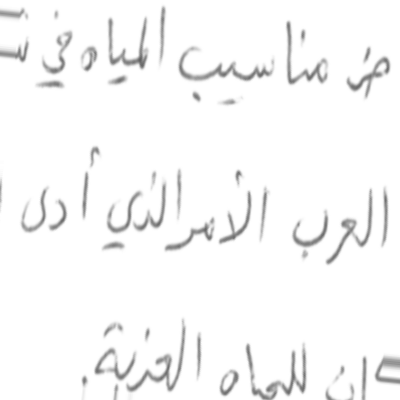 مناسيب المياه في
العرب الأمر الذي أدى
للمياه العذبة.